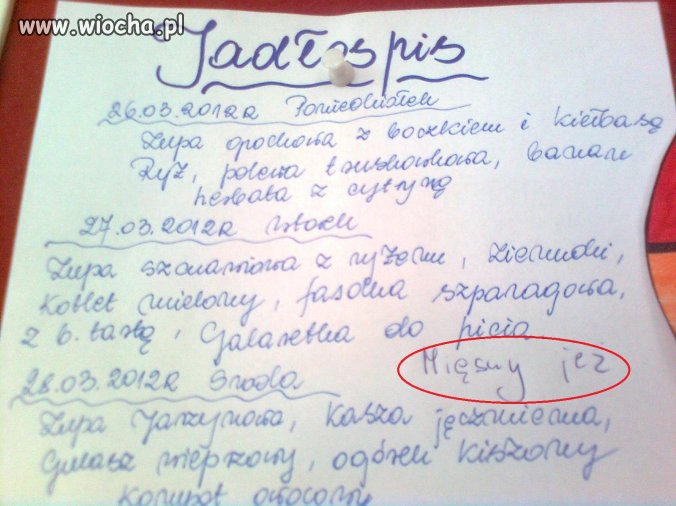 www.wiocha.pl
Jadłospis
26.03.2012r Poniedziałek
Zupa grochowa z boczkiem i kiełbasą
Ryż, polewa truskawkowa, banan
herbata z cytryną
27.03.2012r Wtorek
Zupa szczawiowa z ryżem, ziemniaki,
Kotlet mielony, fasolka szparagowa,
z b. tartą, Galaretka do picia
Mięsny jeż
28.03.2012r Środa
Zupa Jarzynowa, kasza jęczmienna,
Gulasz wieprzowy, ogórek kiszony
Kompot owocowy